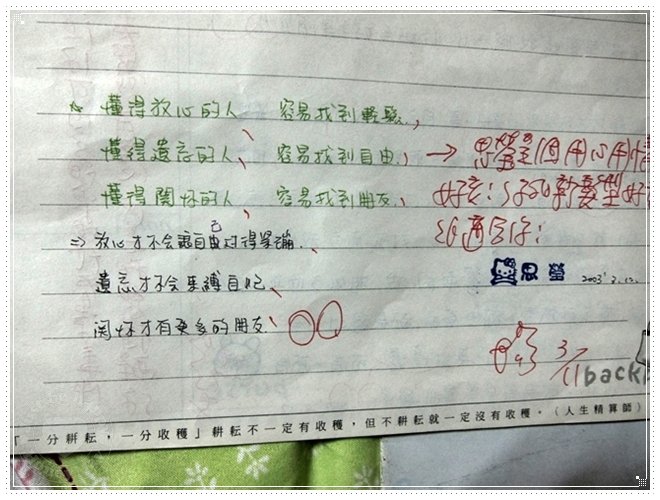 ☆ 懂得放心的人、容易找到輕鬆、
懂得遺忘的人、容易找到自由、
懂得關怀的人、容易找到朋友、
→ 思瑩是個用心用情
好孩! 你的新髮型好
適合你!
⇒ 放心才不會讓自己
遺忘才不會束縛自己、
関怀才有更多的朋友
思瑩 2003' 3.12.
3/11
back
「一分耕耘,一分收穫」耕耘不一定有收穫,但不耕耘就一定沒有收穫。(人生精算師)